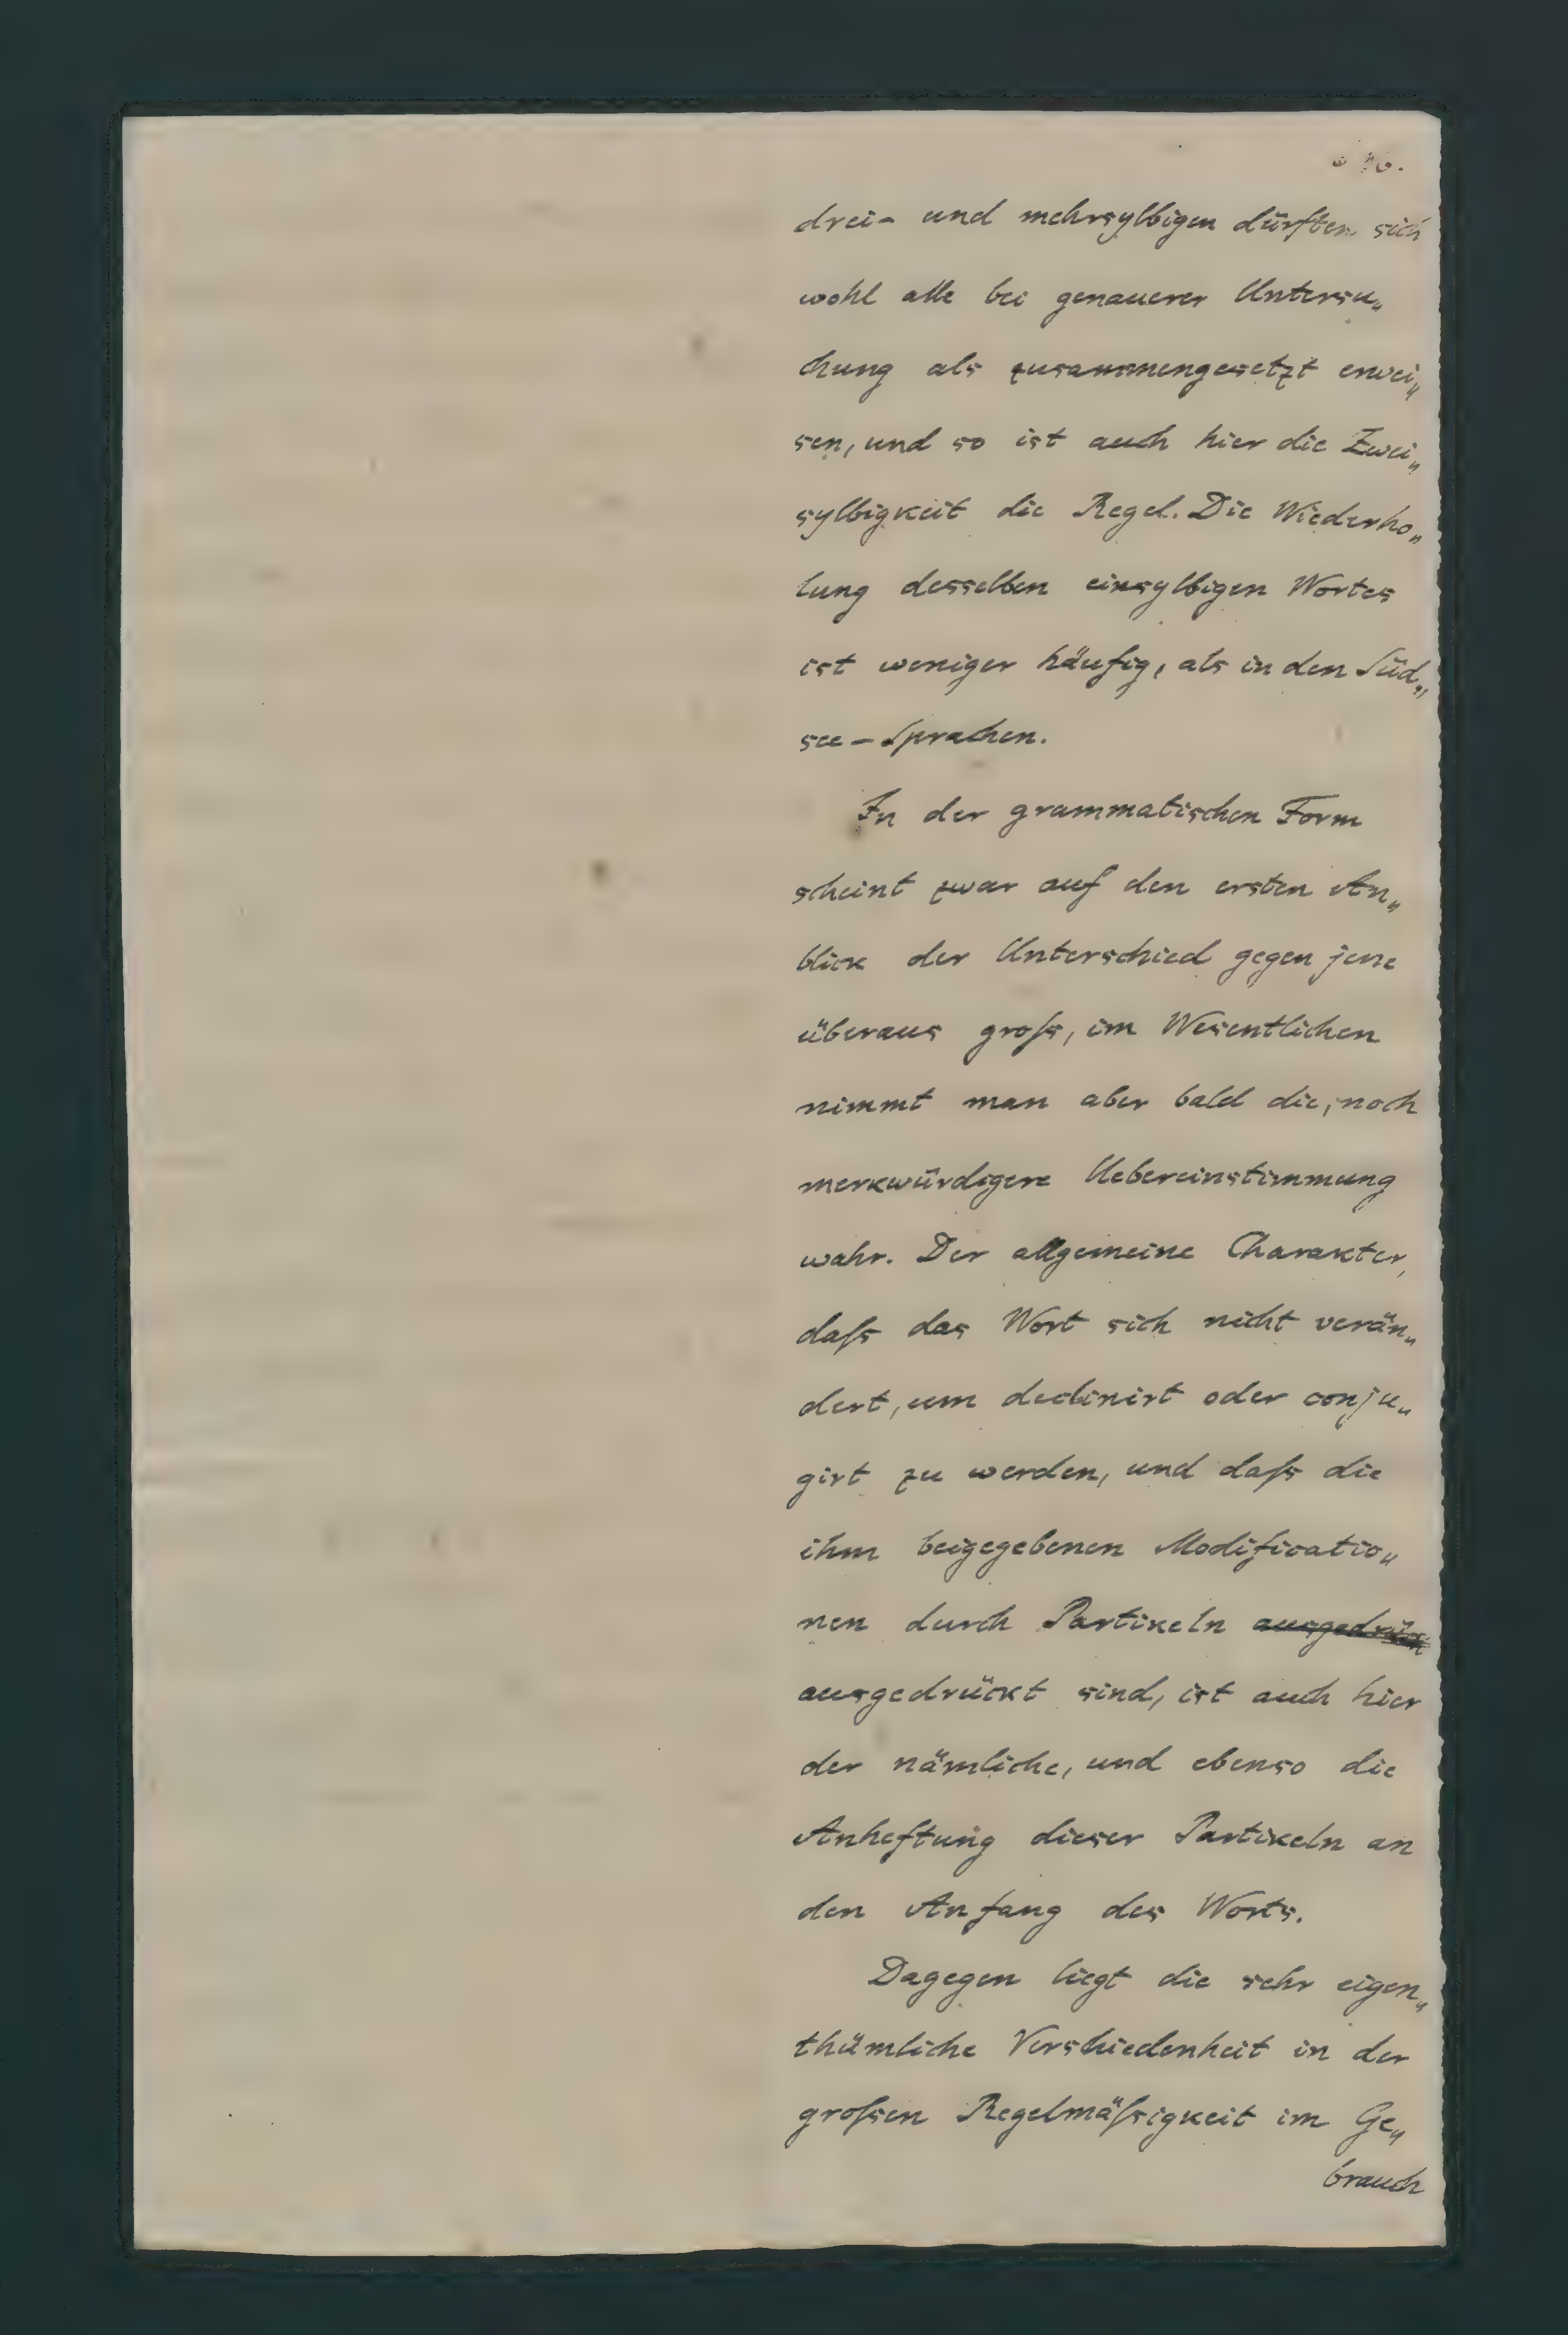 drei- und mehrsylbigen dürften sich
wohl alle bei genauerer Untersu„
chung als zusammengesetzt erwei„
sen, und so ist auch hier die Zwei„
sylbigkeit die Regel. Die Wiederho„
lung desselben einsylbigen Wortes
ist weniger häufig, als in den Süd„
see-Sprachen.
In der grammatischen Form
scheint zwar auf den ersten An„
blick der Unterschied gegen jene
überaus groſs, im Wesentlichen
nimmt man aber bald die, noch
merkwürdigere Uebereinstimmung
wahr. Der allgemeine Charakter,
daſs das Wort sich nicht verän„
dert, um declinirt oder conju„
girt zu werden, und daſs die
ihm beigegebenen Modificatio„
nen durch Partikeln ausgedrück
ausgedrückt sind, ist auch hier
der nämliche, und ebenso die
Anheftung dieser Partikeln an
den Anfang des Worts.
Dagegen liegt die sehr eigen„
thümliche Verschiedenheit in der
groſsen Regelmäſsigkeit im Ge„
brauch